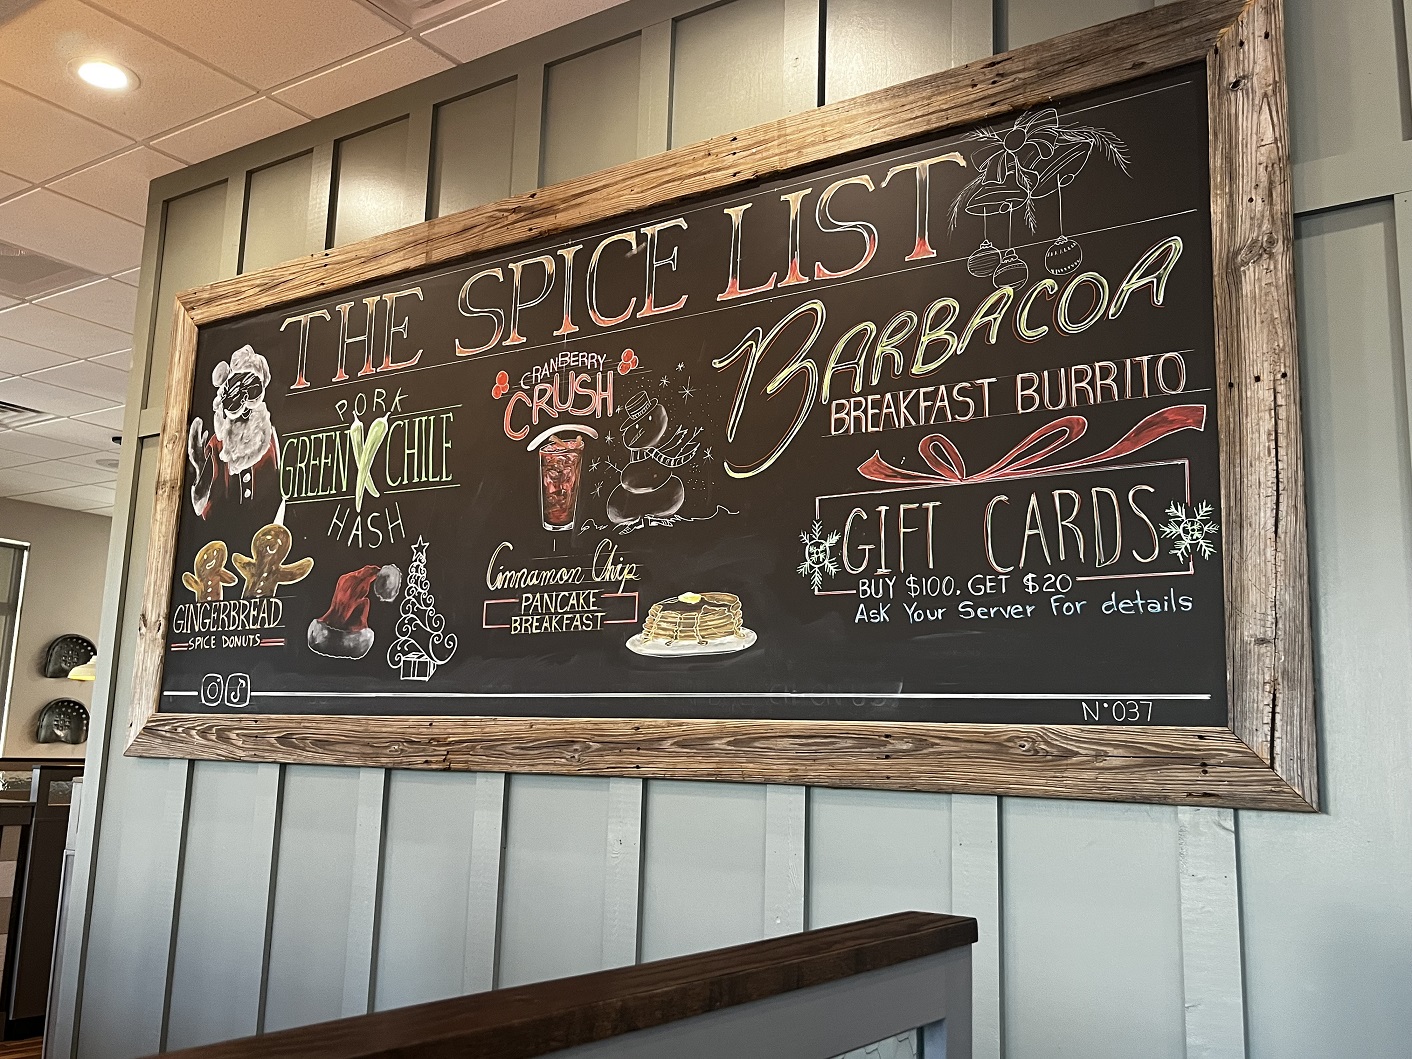 THE SPICE LIST
PORK
GREEN CHILE
HASH
GINGERBREAD
SPICE DONUTS
CRANBERRY
CRUSH
Cinnamon Chip
PANCAKE
BREAKFAST
BARBACOA
BREAKFAST BURRITO
GIFT CARDS
BUY $100, GET $20
Ask Your Server For details
N°037